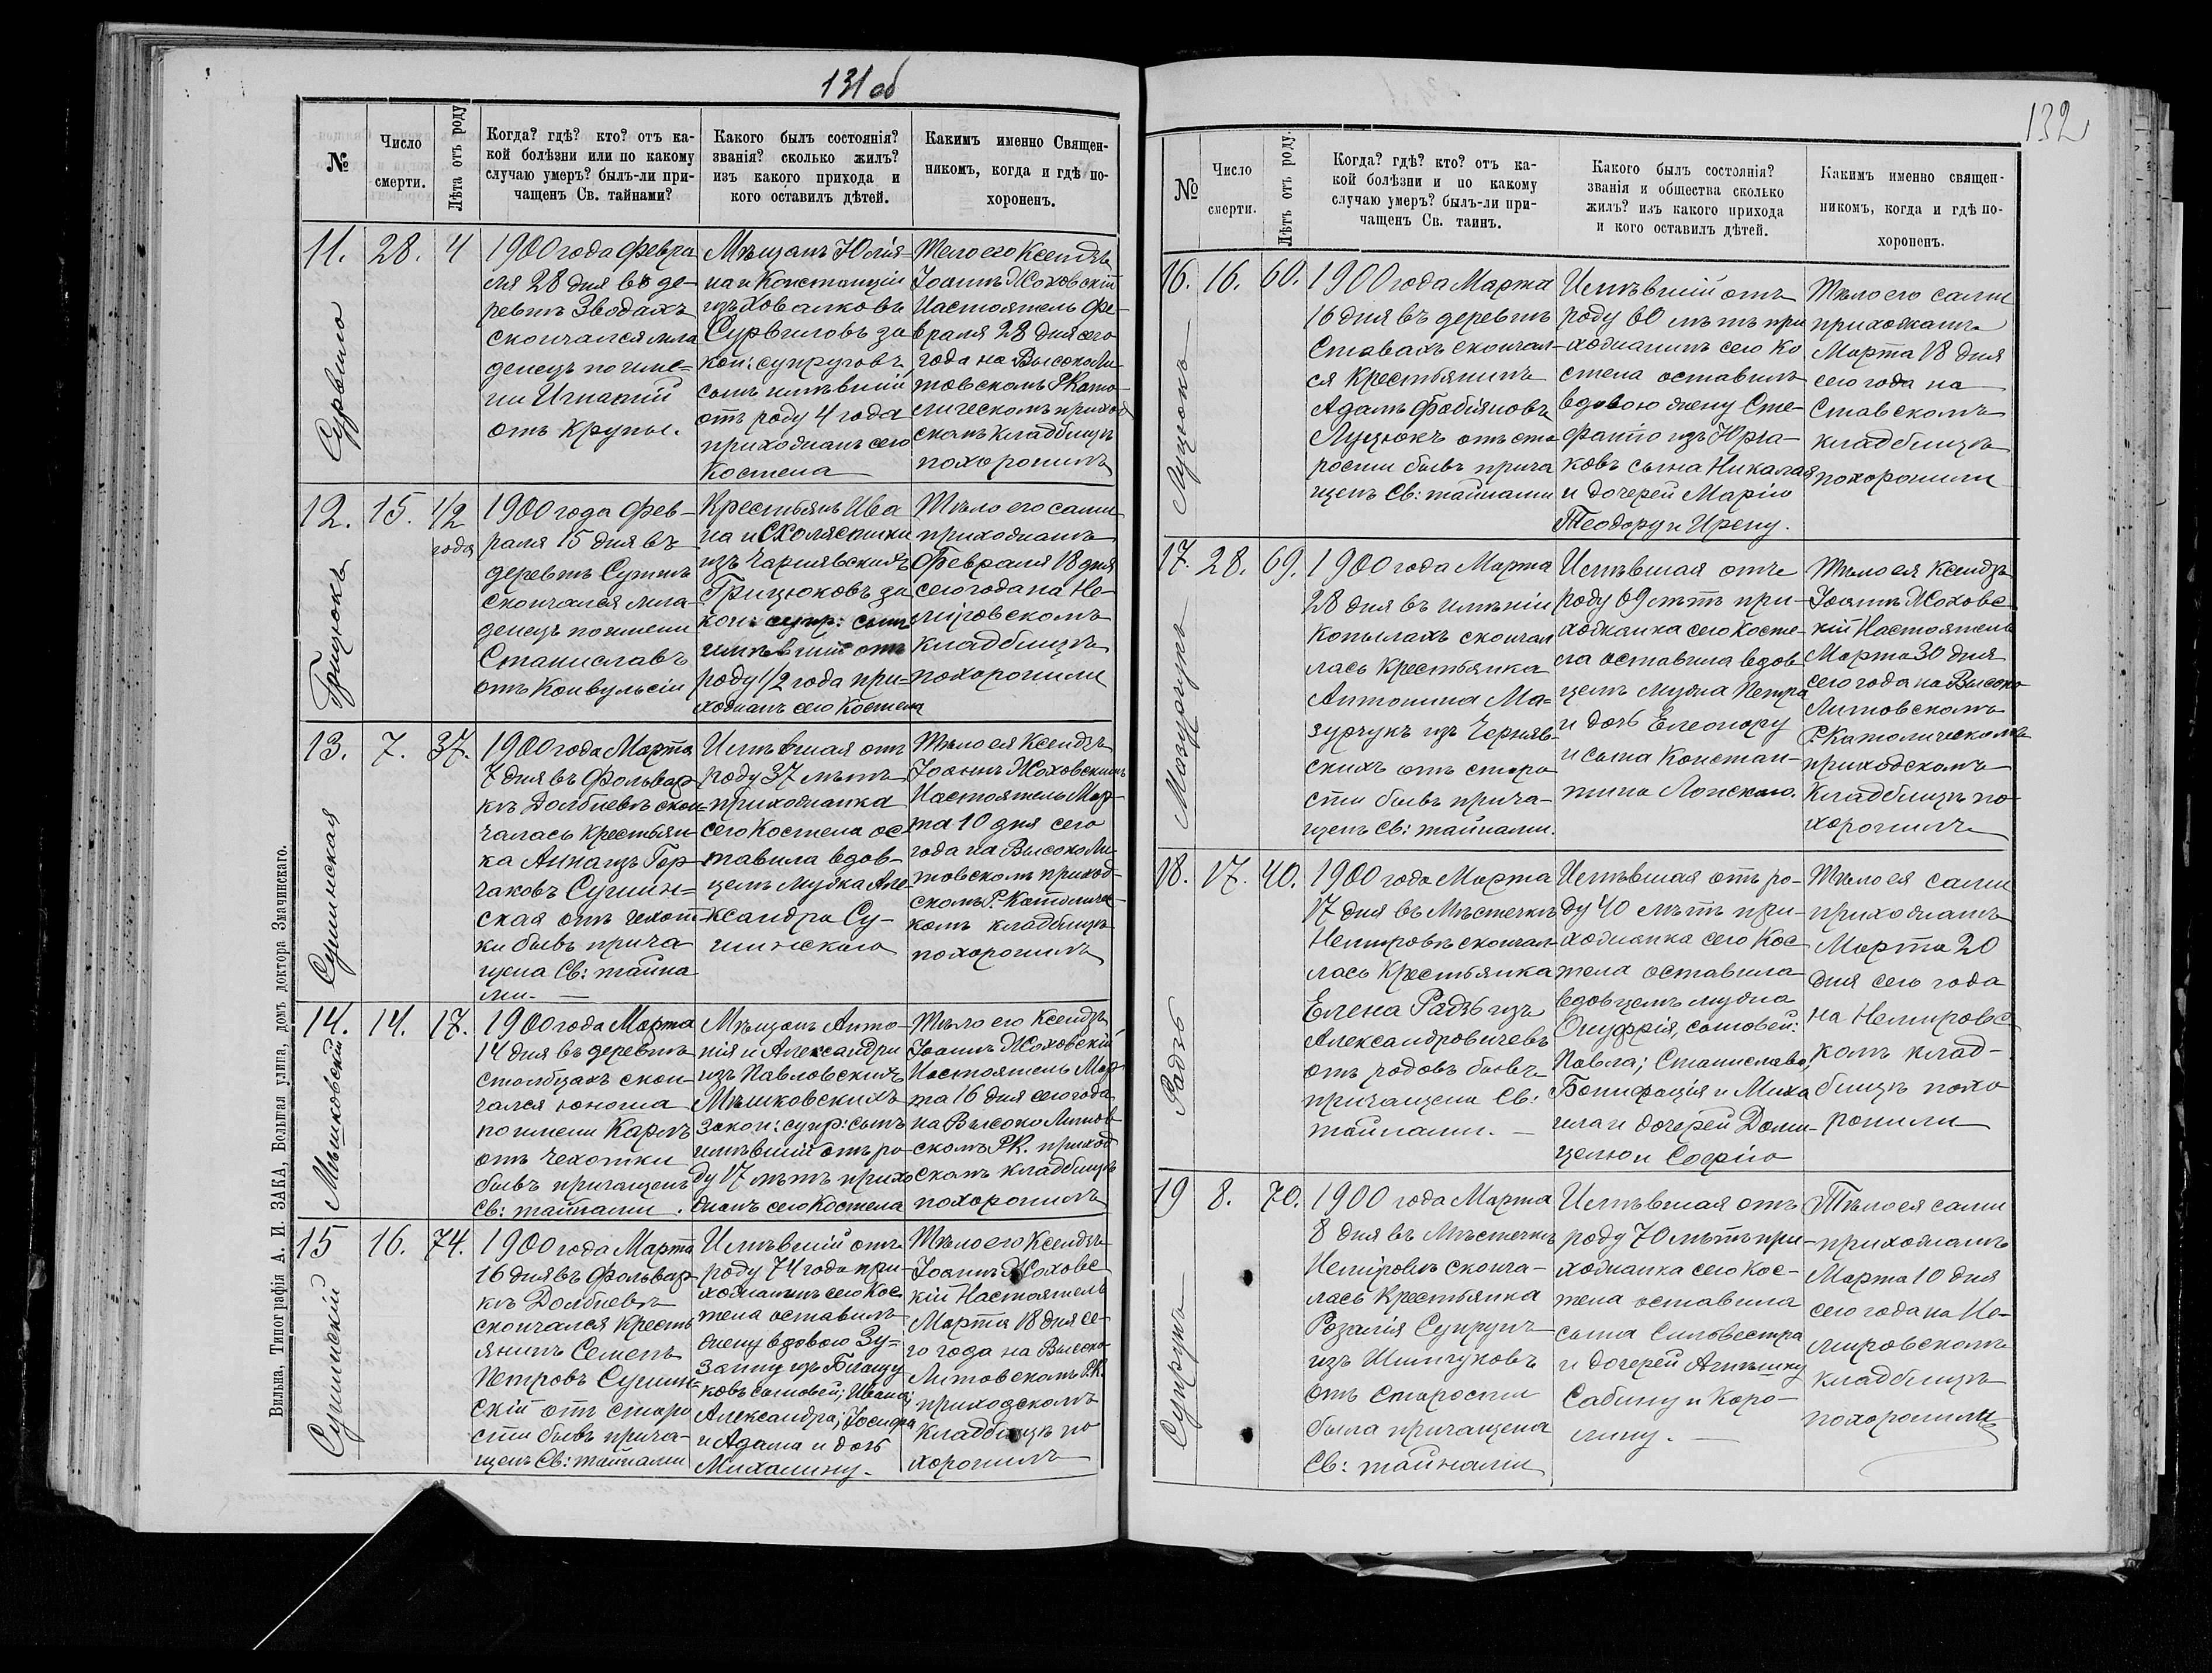 131 об
№
Число
смерти.
Лѣта отъ роду
Когда? гдѣ? кто? отъ ка-
кой болѣзни или по какому
случаю умеръ? былъ-ли при-
чащенъ Св. тайнами?
Какого былъ состоянія?
званія? сколько жилъ?
изъ какого прихода и
кого оставилъ дѣтей.
Какимъ именно Священ-
никомъ, когда и гдѣ по-
хороненъ.
11.
Сурвило
28.
4
1900 года Февра
ля 28 дня въ де-
ревнѣ Зводахъ
скончался мла
денецъ по име=
ни Игнатій
отъ крупы.
Мѣщанъ Юлія-
на и Констанціи
изъ Ховалковъ
Сурвиловъ за
кон: супруговъ
сынъ имѣвшій
отъ роду 4 года
прихожанъ сего
Костела
Тело его Ксендзъ
Іоаннъ Жоховскій
Настоятель Фе-
враля 28 дня сего
года на ВысокоЛи
товскомъ Р.Като-
лическомъ приход
скомъ кладбищѣ
похоронилъ
12.
Грицюкъ
15.
1/2
года
1900 года Фев-
раля 15 дня въ
деревнѣ Сутнѣ
скончался мла-
денецъ по имени
Станиславъ
отъ Конвульсіи
Крестьянъ Ива
на и Схолястики
изъ Чарнявскихъ
Грицюковъ за
кон: супр: сынъ
имѣвшій отъ
роду 1/2 года при=
хожанъ сего Костела
Тѣло его сами
прихожанѣ
Февраля 18 дня
сего года на Не-
мировскомъ
кладбищѣ
похоронили
13.
Сушинская
7.
37.
1900 года Марта
7 дня въ Фольвар
кѣ Долбневѣ скон=
чалась крестьян-
ка Анна изъ Гор-
чаковъ Сушин=
ская отъ чехот-
ки бывъ прича
щена Св: тайна
ми.
Имѣвшая отъ
роду 37 лѣтъ
прихожанка
сего Костела ос-
тавила вдов-
цемъ мужа Але-
ксандра Су-
шинского
Тѣло ея Ксендзъ
Іоаннъ Жоховскій
Настоятель Мар-
та 10 дня сего
года на ВысокоЛи
товскомъ приход-
скомъ Р.Католичес-
комъ кладбищѣ
похоронилъ
14.
Мѣшковскій
14.
17.
1900 года Марта
14 дня въ деревнѣ
Столбцахъ скон-
чался юноша
по имени Карлъ
отъ чехотки
бывъ причащенъ
Св: тайнами.
Мѣщанъ Анто-
нія и Александры
изъ Павловскихъ
Мѣшковскихъ
закон: супр: сынъ
имѣвшій отъ ро-
ду 17 лѣтъ прихо
жанъ сего Костела
Тѣло его Ксендзъ
Іоаннъ Жоховскій
Настоятель Мар-
та 16 дня сего года
на Высоко Литов-
скомъ Р.К. приход
скомъ кладбищѣ
похоронилъ
15
Сушинскій
16.
74.
1900 года Марта
16 дня въ Фольвар-
кѣ Долбневѣ
скончался кресть
янинъ Семенъ
Петровъ Сушин=
скій отъ старо
сти бывъ прича-
щенъ Св: тайнами
Имѣвшій отъ
роду 74 года при-
хожанинъ сего Кос-
тела оставилъ
жену вдовою Зу=
занну изъ
ковъ сыновей; Ивана;
Александра; Іосифа
и Адама и дочь
Михалину.
Тѣло его Ксендзъ
Іоаннъ Жоховс
кій Настоятель
Марта 18 дня се-
го года на Высоко-
Литовскомъ Р.К.
приходскомъ
Кладбищѣ по
хоронилъ
Вильна. Типографія А. И. ЗАКА, Большая улица, домъ доктора Змачинскаго.
132
№
Число
смерти.
Лѣтъ отъ роду.
Когда? гдѣ? кто? отъ ка-
кой болѣзни и по какому
случаю умеръ? былъ-ли при-
чащенъ Св. таинъ.
Какого былъ состоянія?
званія и общества сколько
жилъ? изъ какого прихода
и кого оставилъ дѣтей.
Какимъ именно священ-
никомъ, когда и гдѣ по-
хороненъ.
16.
Луцюкъ
16.
60.
1900 года Марта
16 дня въ деревнѣ
Ставахъ скончал-
ся Крестьянинъ
Адамъ Фабіяновъ
Луцюкъ отъ ста
рости бывъ прича
щенъ Св: тайнами
Имѣвшій отъ
роду 60 лѣтъ при
хожанинъ сего Ко
стела оставилъ
вдовою жену Сте-
фанію изъ Юрча-
ковъ сына Николая
и дочерей Марію
Теодору и Ирену.
Тѣло его сами
прихожанѣ
Марта 18 дня
сего года на
Ставскомъ
кладбищѣ
похоронили
17.
Мазурчукъ
28.
69.
1900 года Марта
28 дня въ имѣніи
Копылахъ скончал
лась Крестьянка
Антонина Ма=
зурчукъ изъ Черняв-
скихъ отъ старо
сти бывъ прича-
щенъ Св: тайнами.
Имѣвшая отъ
роду 69 лѣтъ при-
хожанка сего Косте-
ла оставила вдов
цемъ мужа Петра
и дочь Елеонору
и сына Констан-
тина Лонского.
Тѣло ея Ксендзъ
Іоаннъ Жоховс-
кій Настоятель
Марта 30 дня
сего года на Высоко
Литовскомъ
Р.Католическомъ
приходскомъ
Кладбищѣ по-
хоронилъ
18.
Радь
17.
40.
1900 года Марта
17 дня въ Мѣстечкѣ
Немировѣ скончал-
лась Крестьянка
Елена Радь изъ
Александровичевъ
отъ родовъ бывъ
причащена Св:
тайнами.
Имѣвшая отъ ро-
ду 40 лѣтъ при-
хожанка сего Кос-
тела оставила
вдовцемъ мужа
Онуфрія, сыновей:
Павла; Станислава;
Бонифація и Миха
ила и дочерей Доми-
целю и Софію
Тѣло ея сами
прихожанѣ
Марта 20
дня сего года
на Немировс
комъ клад-
бищѣ похо
ронили
19
Супрунъ
8.
70.
1900 года Марта
8 дня въ Мѣстечкѣ
Немировѣ сконча-
лась Крестьянка
Розалія Супрунъ
изъ Шимчуковъ
отъ старости
была причащена
Св: тайнами
Имѣвшая отъ
роду 70 лѣтъ при-
хожанка сего Кос-
тела оставила
сына Сильвестра
и дочерей Агнѣшку
Сабину и Каро-
лину.
Тѣло ея сами
прихожанѣ
Марта 10 дня
сего года на Не-
мировскомъ
кладбищѣ
похоронили